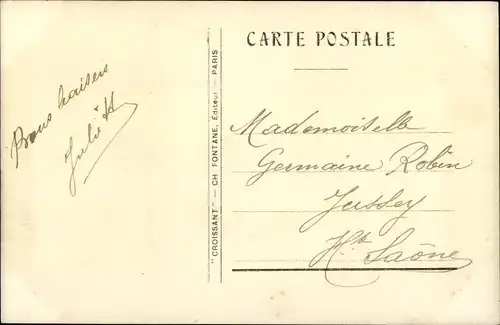 CARTE POSTALE
Bons baisers
Julie H
"CROISSANT" — CH. FONTANE, Éditeur — PARIS
Mademoiselle
Germaine Robin
Jussey
Hte Saône